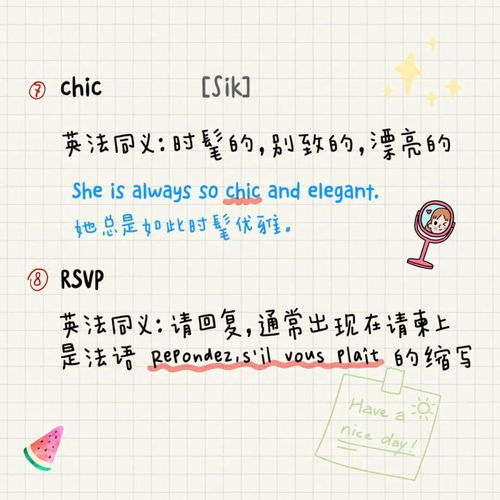 ⑦ chic [Sik]
英法同义:时髦的,别致的,漂亮的
She is always so chic and elegant.
她总是如此时髦优雅。
⑧ RSVP
英法同义:请回复,通常出现在请柬上
是法语 Repondez,s'il vous plait 的缩写
Have a
nice day!